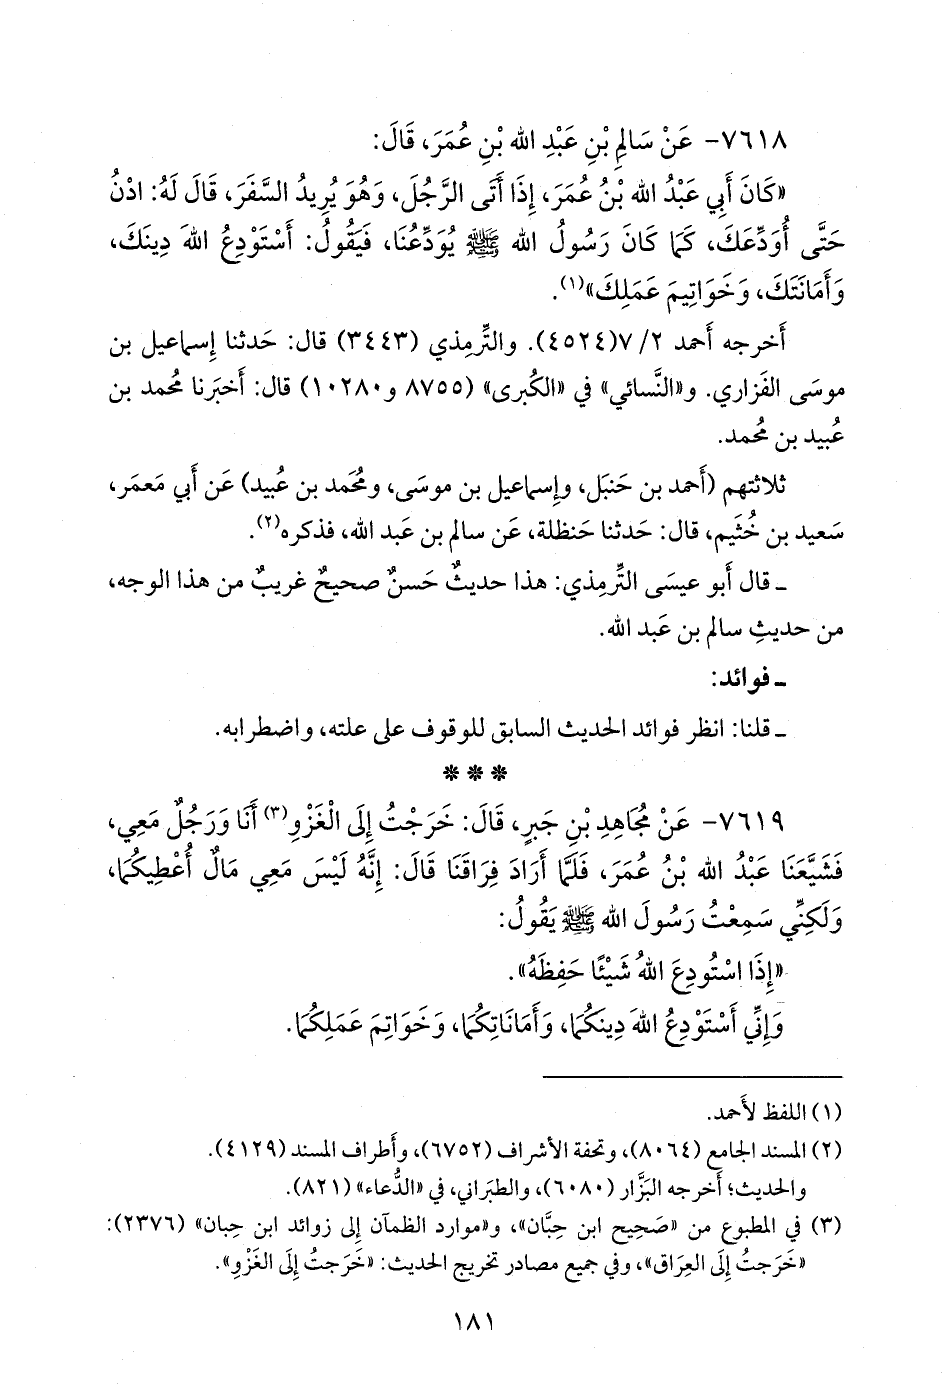 ٧٦١٨- عَنْ سَالِمِ بْنِ عَبْدِ الله بْنِ عُمَرَ، قَالَ:
«كَانَ أَبِي عَبْدُ الله بْنُ عُمَرَ، إِذَا أَتَى الرَّجُلَ، وَهُوَ يُرِيدُ السَّفَرَ، قَالَ لَهُ: ادْنُ
حَتَّى أُوَدِّعَكَ، كَمَا كَانَ رَسُولُ الله ﷺ يُوَدِّعُنَا، فَيَقُولُ: أَسْتَوْدِعُ اللهَ دِينَكَ،
وَأَمَانَتَكَ، وَخَوَاتِيمَ عَمَلِكَ»(١).
أَخرجه أَحمد ٢/ ٧(٤٥٢٤). والتِّرمِذي (٣٤٤٣) قال: حَدثنا إِسماعيل بن
موسَى الفَزاري. و«النَّسائي» في «الكُبرى» (٨٧٥٥ و١٠٢٨٠) قال: أَخبَرنا مُحمد بن
عُبيد بن مُحمد.
ثلاثتهم (أَحمد بن حَنبَل، وإِسماعيل بن موسَى، ومُحَمد بن عُبيد) عَن أَبي مَعمَر،
سَعيد بن خُثَيم، قال: حَدثنا حَنظلة، عَن سالم بن عَبد الله، فذكره(٢).
ـ قال أَبو عيسَى التِّرمِذي: هذا حديثٌ حَسنٌ صحيحٌ غريبٌ من هذا الوجه،
من حديثِ سالم بن عَبد الله.
ـ فوائد:
ـ قلنا: انظر فوائد الحديث السابق للوقوف على علته، واضطرابه.
***
٧٦١٩- عَنْ مُجَاهِدِ بْنِ جَبرٍ، قَالَ: خَرَجْتُ إِلَى الْغَزْوِ(٣) أَنَا وَرَجُلٌ مَعِي،
فَشَيَّعَنَا عَبْدُ الله بْنُ عُمَرَ، فَلَمَّا أَرَادَ فِرَاقَنَا قَالَ: إِنَّهُ لَيْسَ مَعِي مَالٌ أُعْطِيكُمَا،
وَلَكِنِّي سَمِعْتُ رَسُولَ الله ﷺ يَقُولُ:
«إِذَا اسْتُودِعَ اللهُ شَيْئًا حَفِظَهُ».
وَإِنِّي أَسْتَوْدِعُ اللهَ دِينَكُمَا، وَأَمَانَاتِكُمَا، وَخَوَاتِمَ عَمَلِكُمَا.
(١) اللفظ لأَحمد.
(٢) المسند الجامع (٨٠٦٤)، وتحفة الأشراف (٦٧٥٢)، وأَطراف المسند (٤١٢٩).
والحديث؛ أَخرجه البَزَّار (٦٠٨٠)، والطبَراني، في «الدُّعاء» (٨٢١).
(٣) في المطبوع من «صَحيح ابن حِبَّان»، و«موارد الظمآن إلى زوائد ابن حِبان» (٢٣٧٦):
«خَرَجتُ إِلَى العِرَاق»، وفي جميع مصادر تخريج الحديث: «خَرَجتُ إِلَى الغَزْوِ».
١٨١